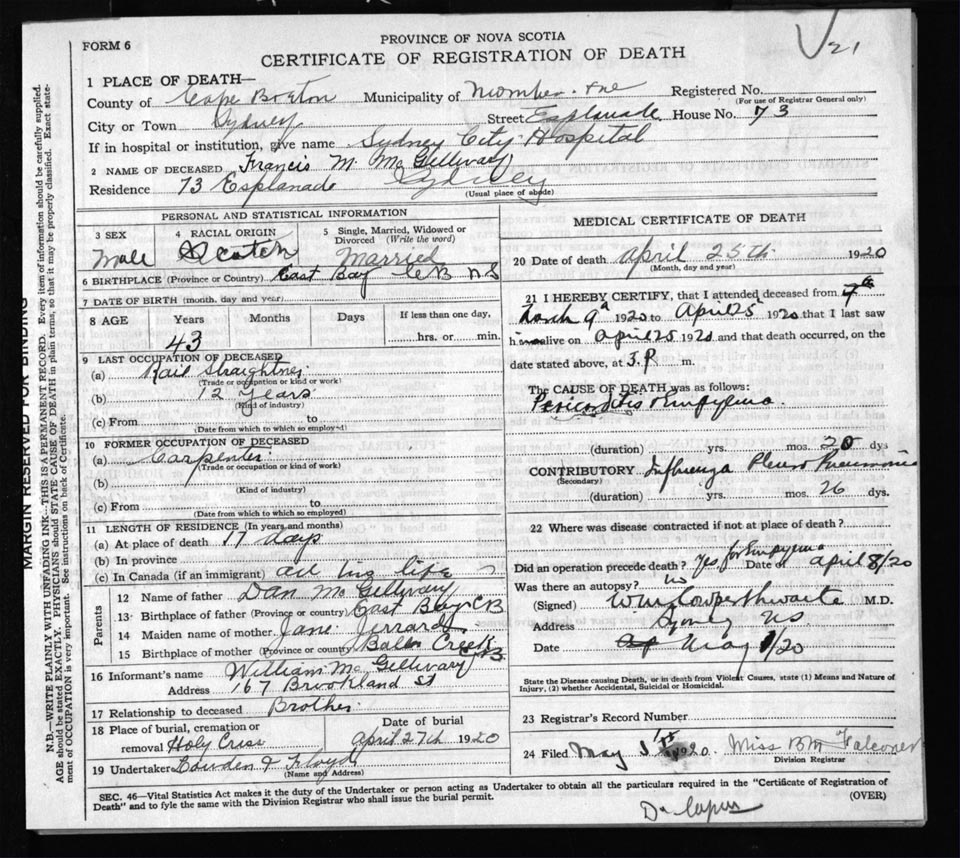 21
PROVINCE OF NOVA SCOTIA
FORM 6
CERTIFICATE OF REGISTRATION OF DEATH
1 PLACE OF DEATH—
County of Cape Breton Municipality of Registered No.
(For use of Registrar General only)
City or Town Sydney Street Esplanade House No. 73
If in hospital or institution, give name Sydney City Hospital
2 NAME OF DECEASED Francis M. McGillivary
Residence 73 Esplanade Sydney
(Usual place of abode)
PERSONAL AND STATISTICAL INFORMATION
3 SEX
Male
4 RACIAL ORIGIN
Scotch
5 Single, Married, Widowed or Divorced (Write the word)
Married
6 BIRTHPLACE (Province or Country) East Bay C B N S
7 DATE OF BIRTH (month, day and year)
8 AGE Years Months Days If less than one day,
43 hrs. or min.
9 LAST OCCUPATION OF DECEASED
(a) Rail Straightner
(Trade or occupation or kind of work)
(b) 12 Years
(Kind of industry)
(c) From to
(Date from which to which so employed)
10 FORMER OCCUPATION OF DECEASED
(a) Carpenter
(Trade or occupation or kind of work)
(b)
(Kind of industry)
(c) From to
(Date from which to which so employed)
11 LENGTH OF RESIDENCE (In years and months)
(a) At place of death 17 days
(b) In province
(c) In Canada (if an immigrant) all his life
Parents
12 Name of father Dan McGillivary
13 Birthplace of father (Province or country) East Bay CB
14 Maiden name of mother Jane Jerrard
15 Birthplace of mother (Province or country) Balls Creek CB
16 Informant's name William McGillivary
Address 167 Brookland St
17 Relationship to deceased Brother
18 Place of burial, cremation or removal Holy Cross
Date of burial April 27th 1920
19 Undertaker Bowden & Floyd
(Name and Address)
MEDICAL CERTIFICATE OF DEATH
20 Date of death April 25th 1920
(Month, day and year)
21 I HEREBY CERTIFY, that I attended deceased from
March 9th 1920 to April 25th 1920 that I last saw
h alive on April 25 1920 and that death occurred, on the
date stated above, at 3.P m.
The CAUSE OF DEATH was as follows:
Pericarditis & Empyema.
(duration) yrs. mos. 20 dys
CONTRIBUTORY Influenza Pleuro Pneumonia
(Secondary)
(duration) yrs. mos. 26 dys.
22 Where was disease contracted if not at place of death?
Did an operation precede death? Yes, for Empyema Date of April 8/20
Was there an autopsy? no
(Signed) Wm Cowperthwaite M.D.
Address Sydney NS
Date May 1/20
State the Disease causing Death, or in death from Violent Causes, state (1) Means and Nature of
Injury, (2) whether Accidental, Suicidal or Homicidal.
23 Registrar's Record Number
24 Filed May 1st 1920. Miss BM Falconer
Division Registrar
SEC. 46—Vital Statistics Act makes it the duty of the Undertaker or person acting as Undertaker to obtain all the particulars required in the "Certificate of Registration of
Death" and to fyle the same with the Division Registrar who shall issue the burial permit.
(OVER)
MARGIN RESERVED FOR BINDING
N.B.—WRITE PLAINLY WITH UNFADING INK—THIS IS A PERMANENT RECORD. Every item of information should be carefully supplied.
AGE should be stated EXACTLY. PHYSICIANS should STATE CAUSE OF DEATH in plain terms, so that it may be properly classified. Exact statement
of OCCUPATION is very important. See instructions on back of Certificate.